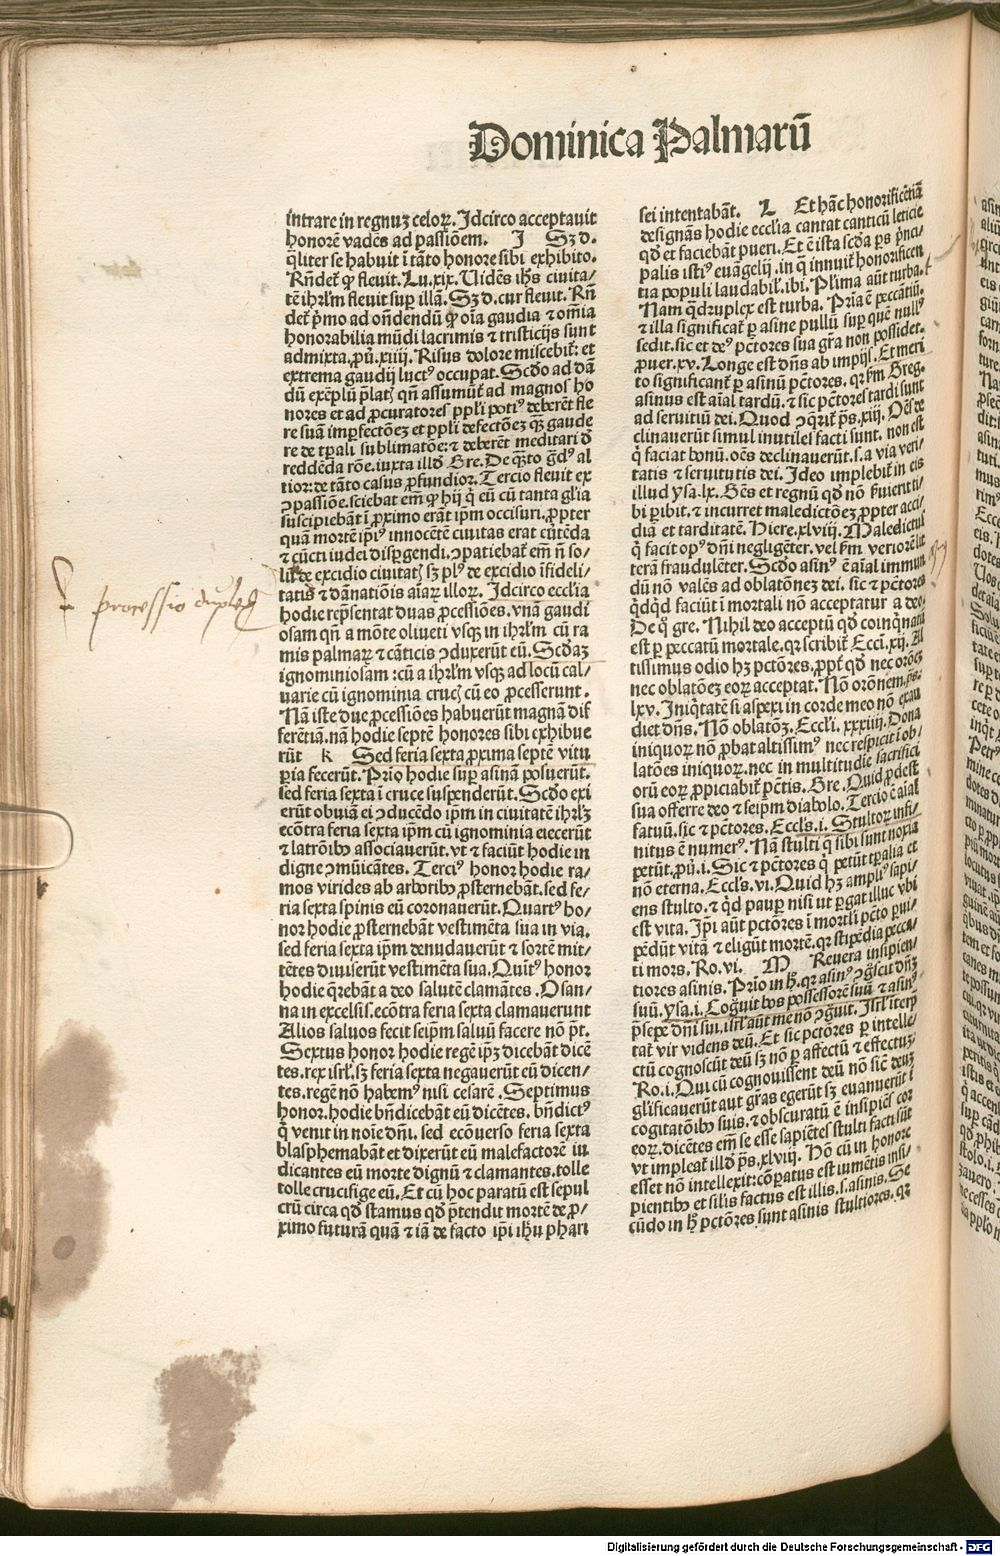 Dominica Palmarū
intrare in regnuȝ celoꝝ. Idcirco acceptauit
honorē vadēs ad passiōem. I Sȝ d.
q̄liter se habuit ī tāto honore sibi exhibito.
Rn̄det̄ ꝙ fleuit. Lu.xix. Uidēs ihs ciuita/
tē ihrlm̄ fleuit suꝑ illā. Sȝ d. cur fleuit. Rn̄
det̄ p̄mo ad on̄dendū ꝙ oīa gaudia ⁊ om̄ia
honorabilia mūdi lacrimis ⁊ tristicijs sunt
admixta. ꝓu̇. xiiij. Risus dolore miscebit̄: et
extrema gaudij luctꝰ occupat. Scd̄o ad dā
dū exēplū p̄latꝭ qn̄ assumūt̄ ad magnos ho
nores et ad ꝓcuratores ppl̄i potiꝰ deberēt fle
re suā imꝑfectōeȝ et ppl̄i defectōeȝ qȝ̄ gaude
re de tꝑali sublimatōe: ⁊ deberēt meditari d̄
reddēda rōe. iuxta illd̄ Gre. De q̄nto gd̄ꝰ al
tior: de tāto casus ꝓfundior. Tercio fleuit ex
ꝯpassiōe. sciebat em̄ ꝙ hij q̇ eū cū tanta gl̄ia
suscipiebāt ī ꝓximo erāt ip̄m occisuri. ꝓpter
quā mortē ip̄iꝰ innocētē ciuitas erat eu̇tēda
⁊ cūcti iudei disꝑgendi. ꝯpatiebat̄ em̄ n̄ so/
lū de excidio ciuitatꝭ sȝ plꝰ de excidio īfideli/
tatis ⁊ dānatiōis aīaꝝ illoꝝ. Idcirco eccl̄ia
hodie rep̄sentat duas ꝓcessiōes. vnā gaudi
osam qn̄ a mōte oliueti vsqȝ in ihrlm̄ cū ra
mis palmaꝝ ⁊ cāticis ꝯduxerūt eū. Scd̄aȝ
ignominiosam: cū a ihrlm̄ vsqȝ ad locū cal/
uarie cū ignominia crucꝭ cū eo ꝓcesserunt.
Nā iste due ꝓcessiōes habuerūt magnā dif
ferētiā. nā hodie septē honores sibi exhibue
rūt k Sed feria sexta ꝓxima septē vitu
ꝑia fecerūt. Prīo hodie suꝑ asinā posuerūt.
sed feria sexta ī cruce suspenderūt. Scd̄o exi
erūt obuiā ei ꝯducēdo ip̄m in ciuitatē ihrlȝ
ecōtra feria sexta ip̄m cū ignominia eiecerūt
⁊ latrōibꝰ associauerūt. vt ⁊ faciūt hodie in
digne ꝯmūicātes. Terciꝰ honor hodie ra/
mos virides ab arboribꝰ ꝓsternebāt. sed fe/
ria sexta spinis eū coronauerūt. Quartꝰ ho/
nor hodie ꝓsternebāt vestimēta sua in via.
sed feria sexta ip̄m denudauerūt ⁊ sortē mit/
tētes diuiserūt vestimēta sua. Quītꝰ honor
hodie q̄rebāt a deo salutē clamātes. Osan/
na in excelsis. ecōtra feria sexta clamauerunt
Alios saluos fecit seip̄m saluū facere nō p̄t.
Sextus honor hodie regē ip̄ȝ dicebāt dicē
tes. rex isrl̄. sȝ feria sexta negauerūt eū dicen/
tes. regē nō habemꝰ nisi cesarē. Septimus
honor. hodie bn̄dicebāt eū dicētes. bn̄dictꝰ
q̇ venit in noīe dn̄i. sed ecōuerso feria sexta
blasphemabāt et dixerūt eū malefactorē iu
dicantes eū morte dignū ⁊ clamantes. tolle
tolle crucifige eū. Et cū hoc paratū est sepul
crū circa qd̄ stamus qd̄ p̄tendit mortē de ꝓ/
ximo futurā quā ⁊ iā de facto ip̄i ihu phari
sei intentabāt. L Et hāc honorificētiā
designās hodie eccl̄ia cantat canticū leticie
qd̄ et faciebāt pueri. Et ē ista scd̄a ꝑs p̄nci/
palis istiꝰ euāgelij. in q̄ innuit̄ honorificen
tia populi laudabil̄. ibi. Pl̄ima aūt turba.
Nam q̄druplex est turba. Prīa ē peccātiū.
⁊ illa significat̄ ꝑ asine pullū suꝑ quē nullꝰ
sedit. sic et deꝰ pctōres sua gr̄a non possidet.
ꝓuer. xv. Longe est dn̄s ab impijs. Et meri
to significant̄ ꝑ asinū pctōres. qꝛ ẜm Greg.
asinus est aīal tardū. ⁊ sic pctōres tardi sunt
ad seruitiū dei. Quod ꝯq̄rit̄ ps̄. xiij. Oēs de
clinauerūt simul inutiles facti sunt. non est
q̇ faciat bonū. oēs declinauerūt. s. a via veri/
tatis ⁊ seruitutis dei. Ideo implebit̄ in eis
illud ysa. lx. Gēs et regnū qd̄ nō ẜuierit ti/
bi ꝑibit. ⁊ incurret maledictōeȝ ꝓpter acci/
diā et tarditatē. Hiere. xlviij. Maledictus
q̇ facit opꝰ dn̄i negligēter. vel ẜm veriorē lit
terā fraudulēter. Scd̄o asinꝰ ē aīal immun
dū nō valēs ad oblatōneȝ dei. sic ⁊ pctōres
q̇dqd̄ faciūt ī mortali nō acceptatur a deo.
De q̊ gre. Nihil deo acceptū qd̄ coinq̇natū
est ꝑ peccatū mortale. qꝛ scribit̄ Eccī. xij. Al
tissimus odio hȝ pctōres. ꝓpt̄ qd̄ nec orōeȝ
nec oblatōeȝ eoꝝ acceptat. Nō orōnem. ps̄.
lxv. Iniq̇tatē si aspexi in corde meo nō exau
diet dn̄s. Nō oblatōȝ. Eccl̄i. xxxiiij. Dona
iniquoꝝ nō ꝓbat altissimꝰ nec respicit ī ob/
latōes iniquoꝝ. nec in multitudīe sacrifici
orū eoꝝ ꝓpiciabit̄ pctīs. Gre. Quid ꝓdest
sua offerre deo ⁊ seip̄m diabolo. Tercio ē aīal
fatuū. sic ⁊ pctōres. Eccl̄s. i. Stultoꝝ infi/
nitus ē numerꝰ. Nā stulti q̇ sibi sunt noxia
petūt. ꝓu̇. i. Sic ⁊ pctōres q̇ petūt tꝑalia et
nō eterna. Eccl̄s. vi. Quid hȝ ampliꝰ sapi/
ens stulto. ⁊ q̇d pauꝑ nisi ut ꝑgat illuc vbi
est vita. Ip̄i aūt pctōres ī mortl̄i pctō ꝑui/
pēdūt vitā ⁊ eligūt mortē. qꝛ stipēdia pecca/
ti mors. Ro. vi. M Reuera insipien/
tiores asinis. Prīo in hͦ. qꝛ asinꝰ ꝯgscit dn̄ȝ
suū. ysa. i. Cogn̄uit bos possessorē suū ⁊ asinꝰ
p̄sepe dn̄i sui. isrl̄ aūt me nō ꝯgn̄uit. Isrl̄ īterp̄
tat̄ vir videns deū. Et sic pctōres ꝑ intelle/
ctū cognoscūt deū sȝ nō ꝑ affectū ⁊ effectuȝ.
Ro. i. Qui cū cognouissent deū nō sic̄ deuȝ
gl̄ificauerūt aut gr̄as egerūt sȝ euanuerūt ī
cogitatōibꝰ suis. ⁊ obscuratū ē insipiēs cor
eoꝝ. dicētes em̄ se esse sapiētes stulti facti sūt
vt impleat̄ illd̄ ps̄. xlviij. Hō cū in honore
esset nō intellexit: cōꝑatus est iumētis insi/
pientibꝰ et silis factus est illis. s. asinis. Se
cūdo in hͦ pctōres sunt asinis stultiores. qꝛ
processio duplex
Digitalisierung gefördert durch die Deutsche Forschungsgemeinschaft - DFG